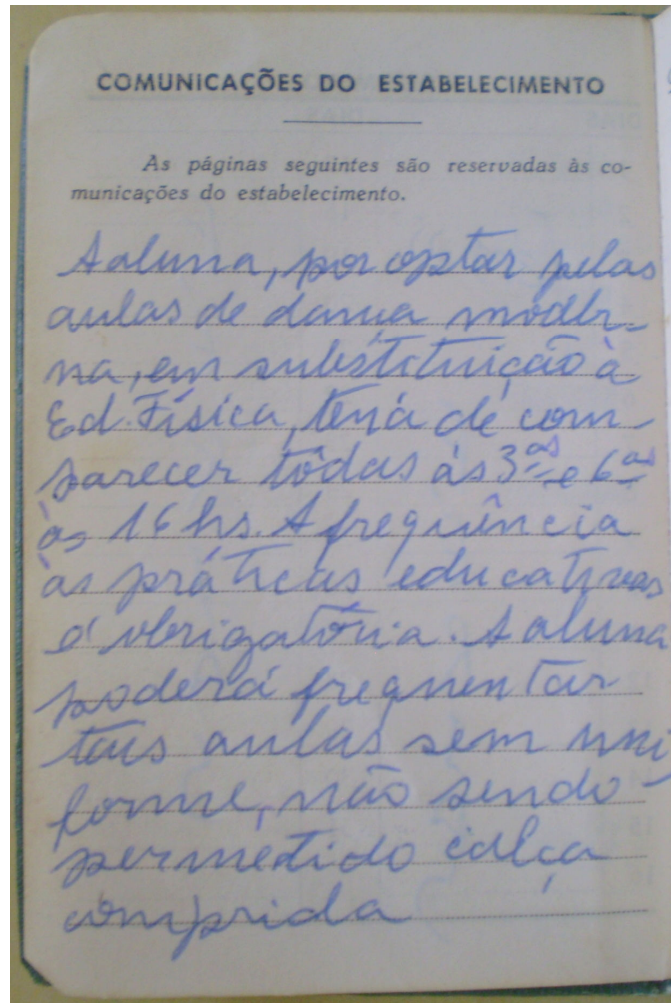 COMUNICAÇÕES DO ESTABELECIMENTO
As páginas seguintes são reservadas às co-
municações do estabelecimento.
A aluna, por optar pelas
aulas de dança moder-
na, em substituição à
Ed. Física, terá de com-
parecer tôdas às 3ªs e 6ªs
às 16 hs. A frequência
às práticas educativas
é obrigatória. A aluna
poderá frequentar
tais aulas sem uni-
forme, não sendo
permetido calça
comprida